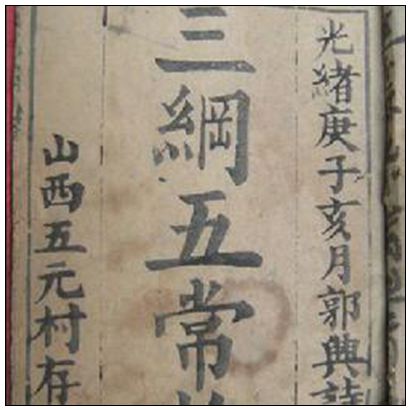 光緒庚子亥月郭興詩
三綱五常
山西五元村存